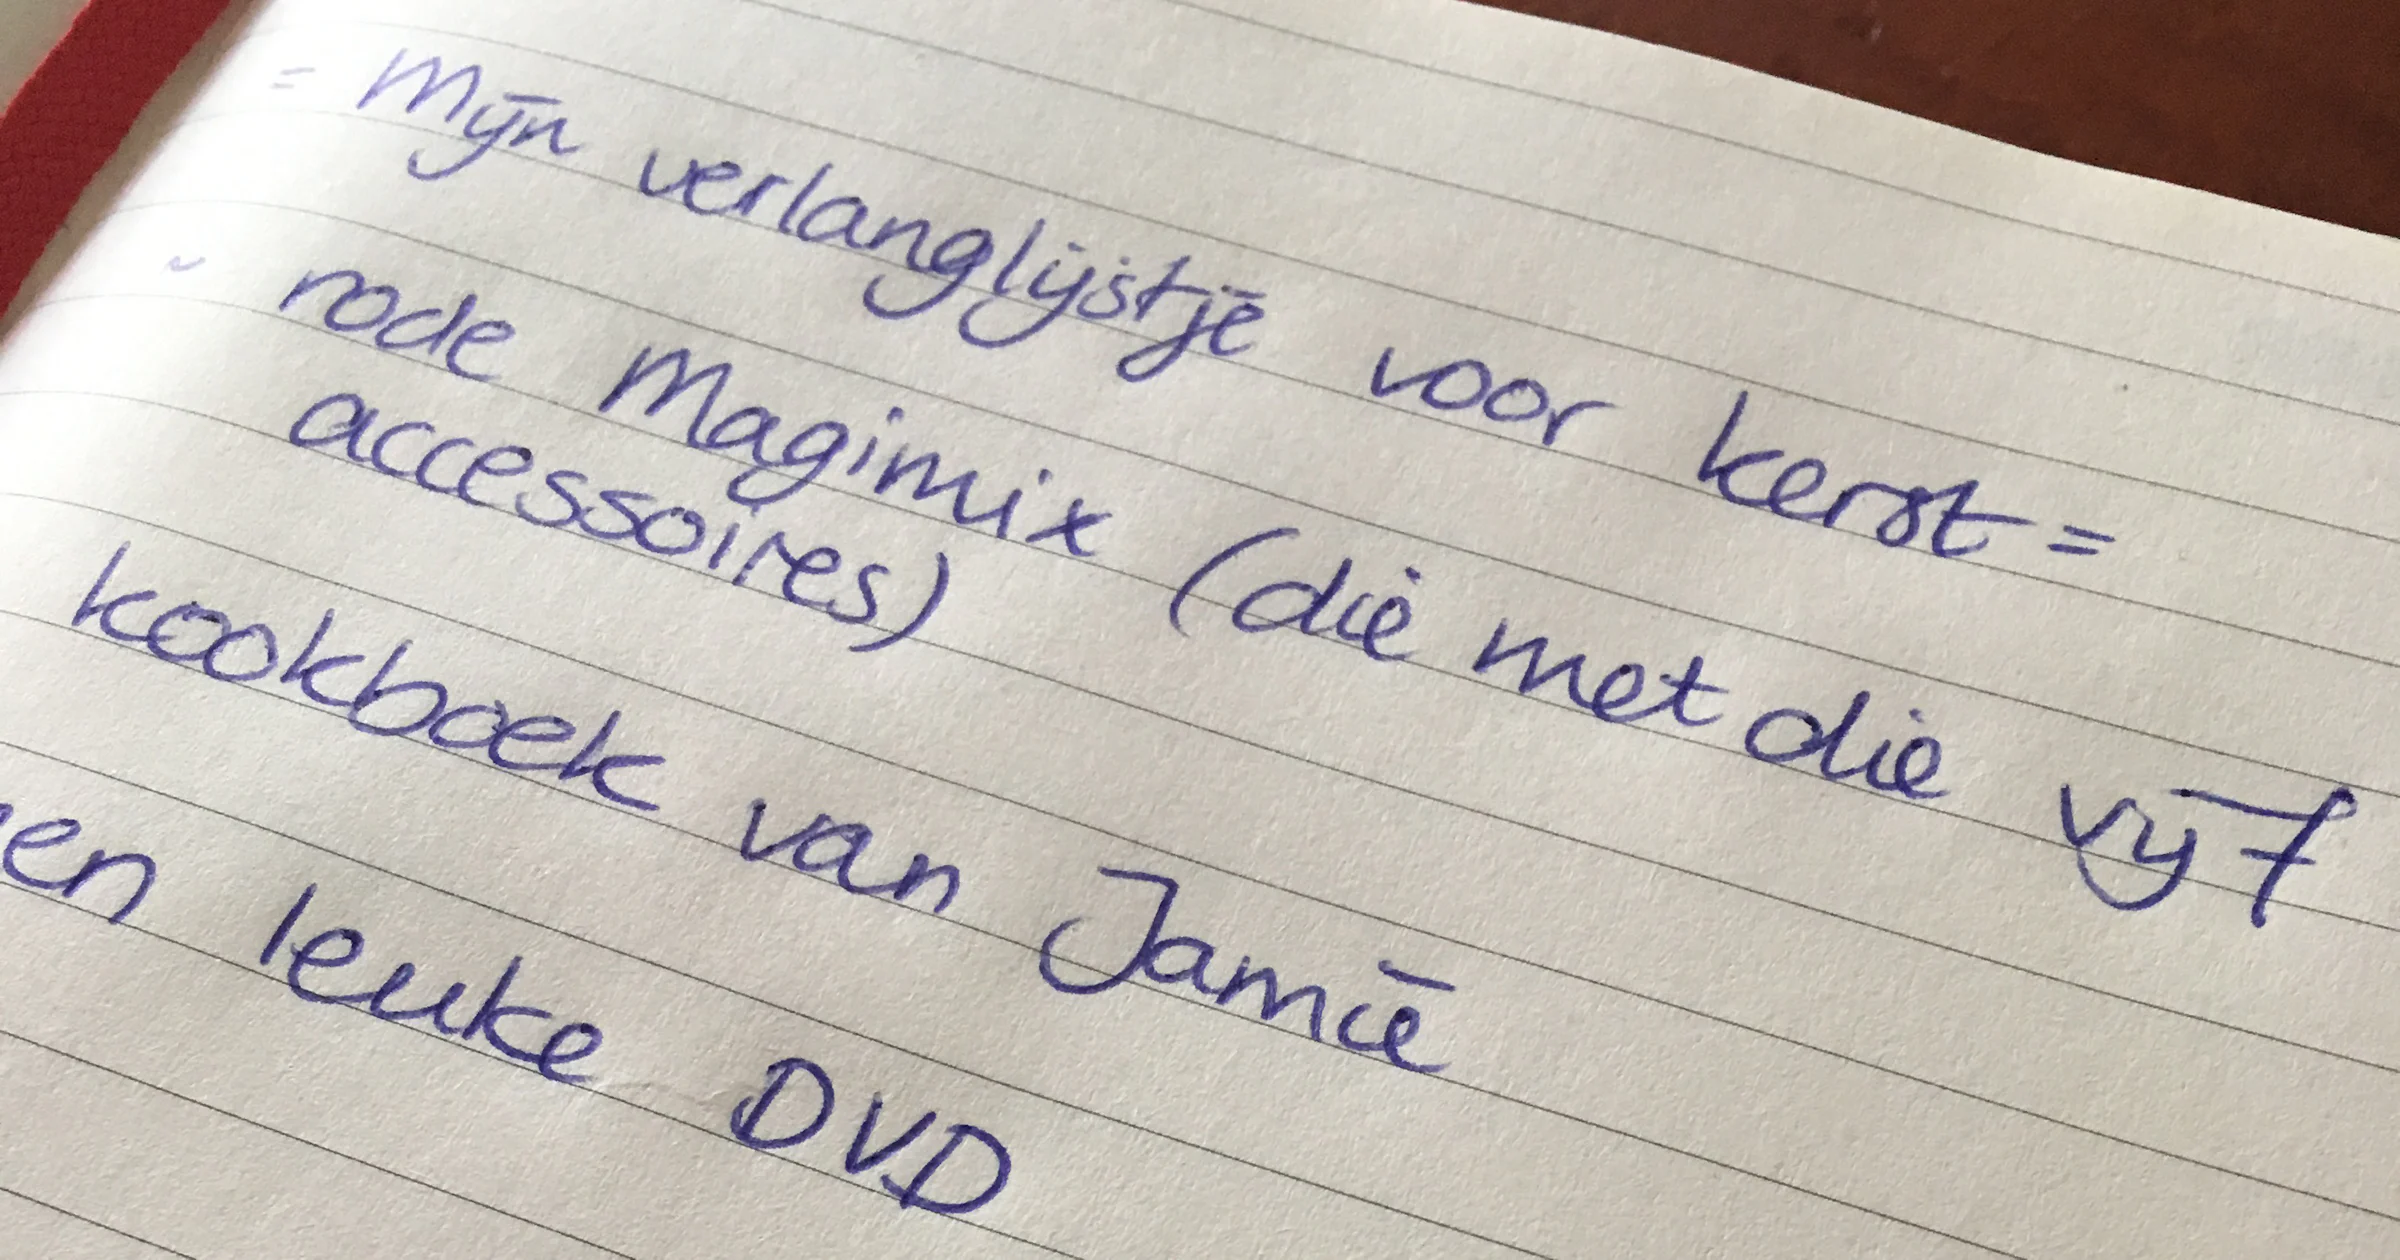 = Mijn verlanglijstje voor kerst =
~ rode Magimix (die met die vijf
accessoires)
kookboek van Jamie
een leuke DVD